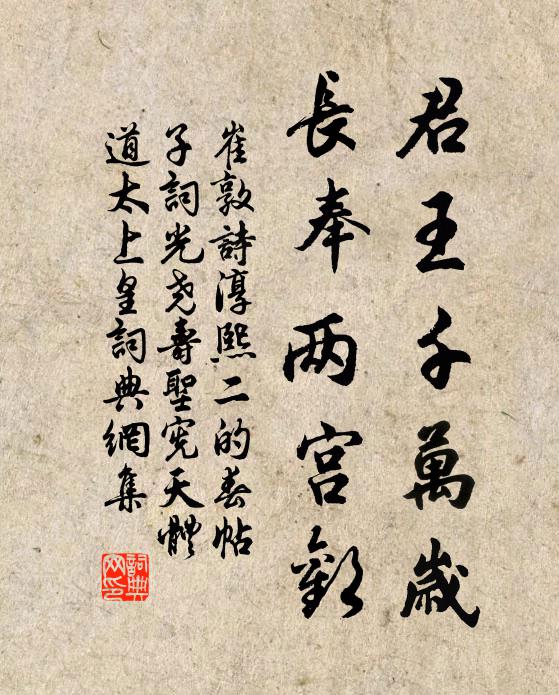 君王千萬歲
長奉两宫歡
崔敦詩淳熙二的春帖
子詞光尧壽聖憲天體
道太上皇詞典網集
詞典网印